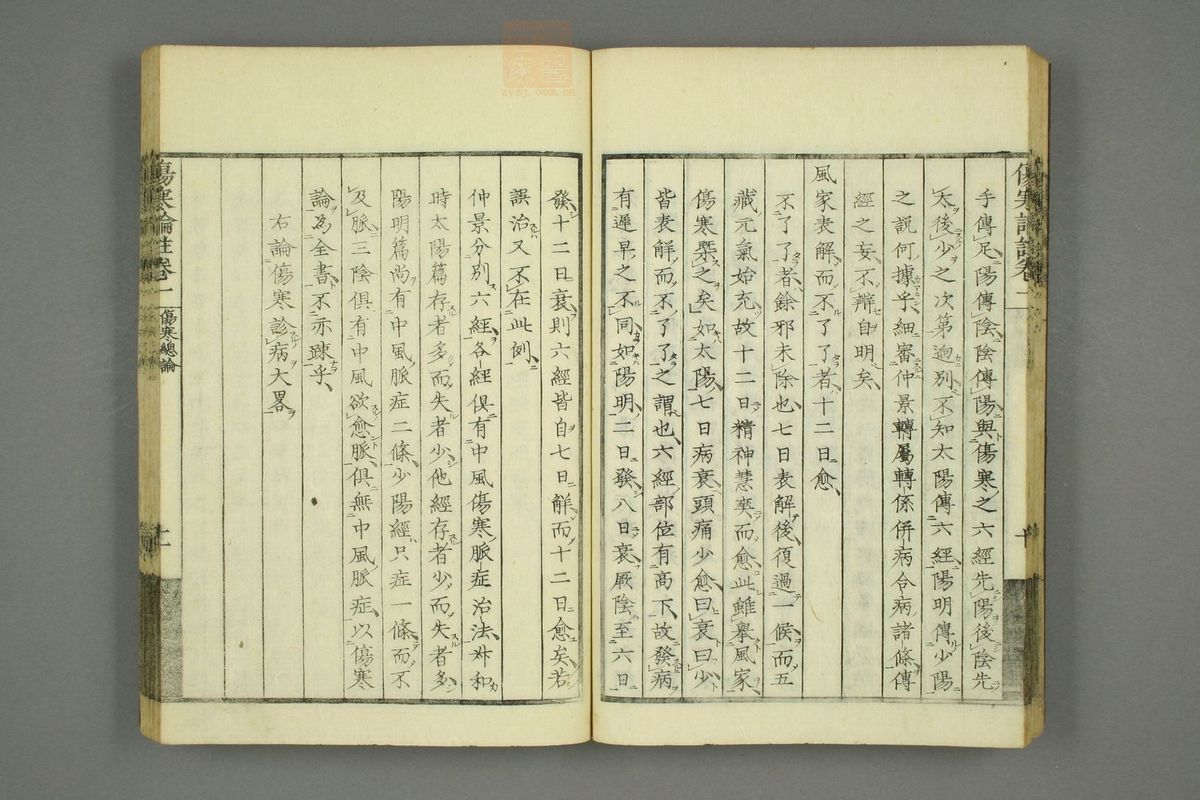 手傳足陽傳陰陰傳陽與傷寒之六經先陽後陰先
太後少之次第逈別不知太陽傳六經陽明傳少陽
之説何據乎細審仲景轉屬轉係併病合病諸條傳
經之妄不辯自明矣
風家表解而不了了者十二日愈
不了了者餘邪未除也七日表解後復過一候而五
藏元氣始充故十二日精神慧爽而愈此雖擧風家
傷寒槩之矣如太陽七日病衰頭痛少愈曰衰曰少
皆表解而不了了之謂也六經部位有高下故發病
有遲早之不同如陽明二日發八日衰厥陰至六日
傷寒論註卷一
傷寒總論
十一
發十二日衰則六經皆自七日解而十二日愈矣若
誤治又不在此例
仲景分別六經各經俱有中風傷寒脈症治法叔和
時太陽篇存者多而失者少他經存者少而失者多
陽明篇尚有中風脈症二條少陽經只症一條而不
及脈三陰俱有中風欲愈脈俱無中風脈症以傷寒
論爲全書不亦疎乎
右論傷寒診病大畧
zysj.com.cn